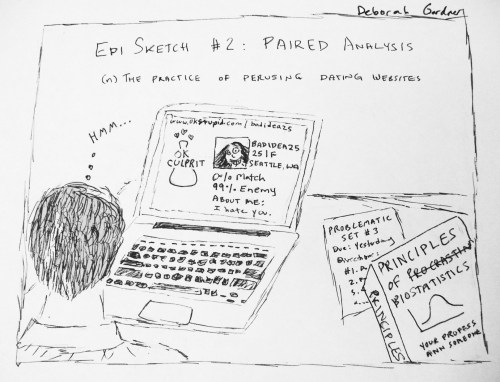 Deborah Gardner
EPI SKETCH #2: PAIRED ANALYSIS
(n) THE PRACTICE OF PERUSING DATING WEBSITES
HMM...
www.okstupid.com/badidea25
OK
CULPRIT
BADIDEA25
25|F
SEATTLE, WA
0% Match
99% Enemy
ABOUT ME:
I hate you.
PROBLEMATIC
SET #3
Due: Yesterday
#1.
2.
3.
PRINCIPLES
OF PROCRASTIN
BIOSTATISTICS
YOUR PROFESS
ANN SOMEONE
PRINCIPLES